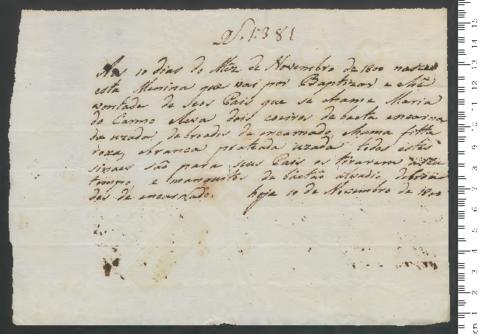 Nº. 1381
Aos 10 dias do Mez de Novembro de 1800 nasceu
esta Menina que vai por Baptizar e he
vontade de seos Pais que se chame Maria
do Carmo leva dois coeiros de baeta encarna
da uzada debroados de encarnado, e huma fitta
roza, e branca prateada uzada todos estes
sinaes são para seus Pais os tirarem a seu
tempo e
hoje 10 de Novembro de 1800